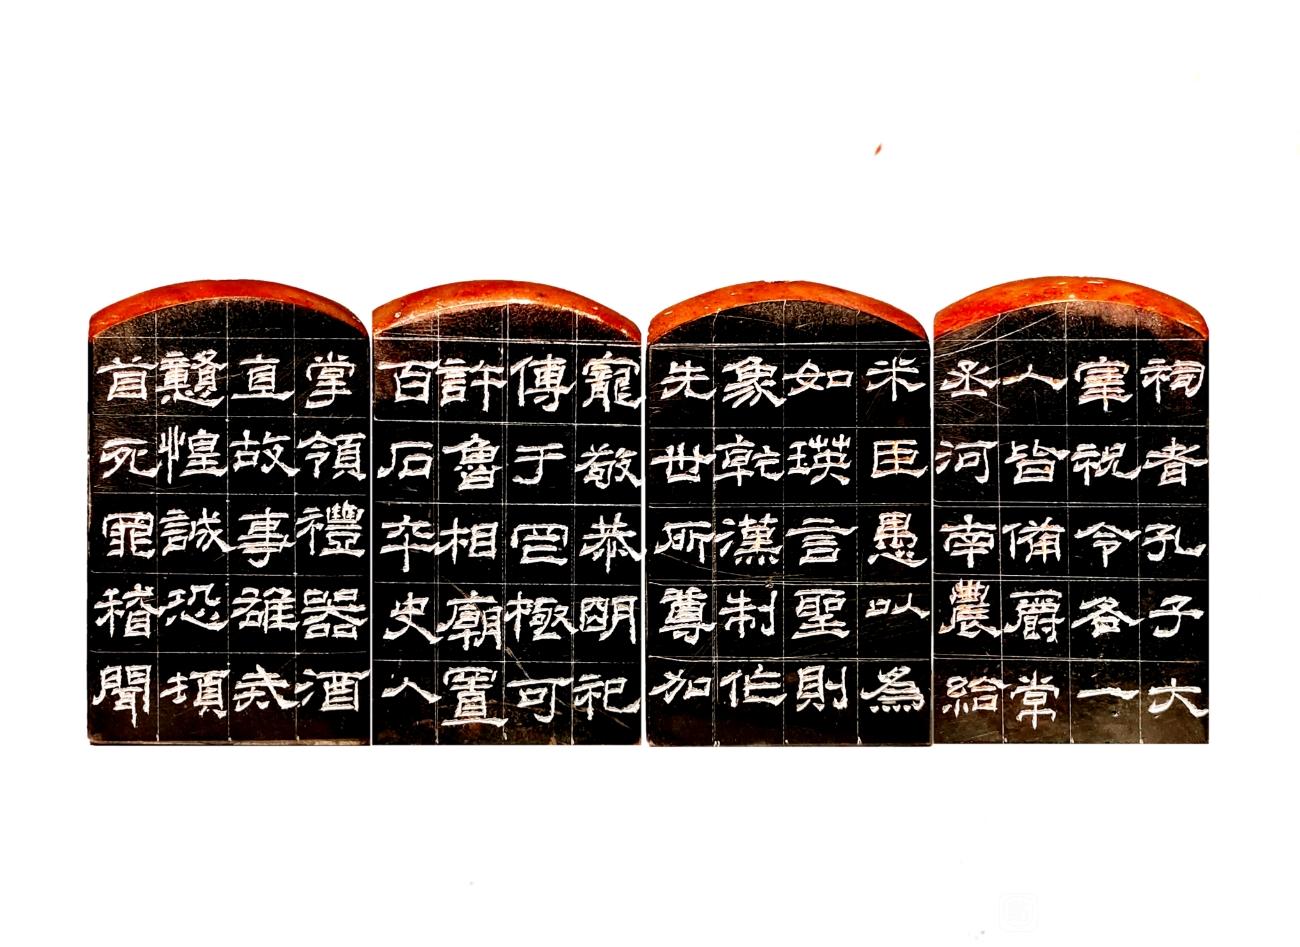 祠者孔子大
宰祝令各一
人皆備爵常
丞河南農給
米臣愚以為
如瑛言聖則
象乾漢制作
先世所尊加
寵敬恭明祀
傳于罔極可
許魯相廟置
百石卒史人
掌領禮器酒
直故事雄戒
戇惶誠恐頓
首死罪稽聞